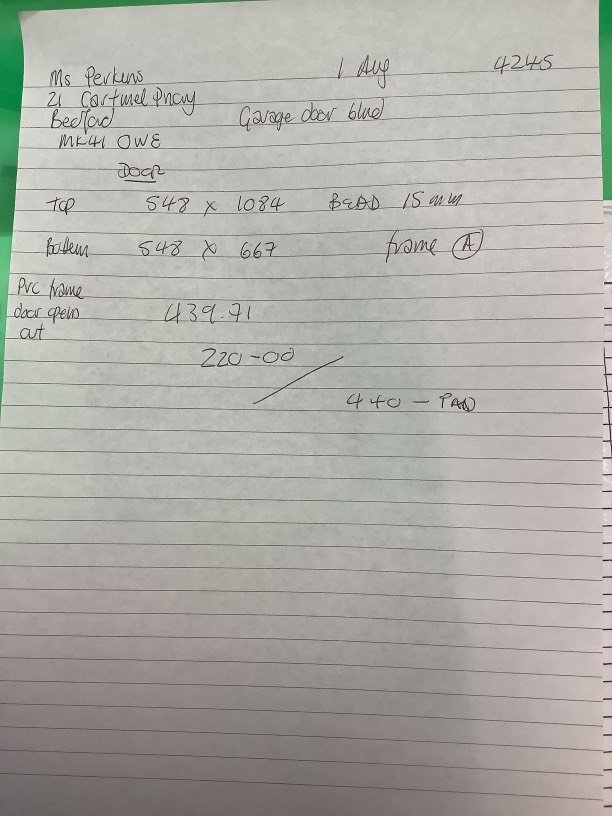 Ms Perkins 1 Aug 4245
21 Cartmel Priory
Bedford Garage door blind
MK41 0WE
Door
Top 548 x 1084 BEAD 15mm
Bottom 548 x 667 frame A
PVC frame
door opens 439.71
out
220-00
440 - PAID